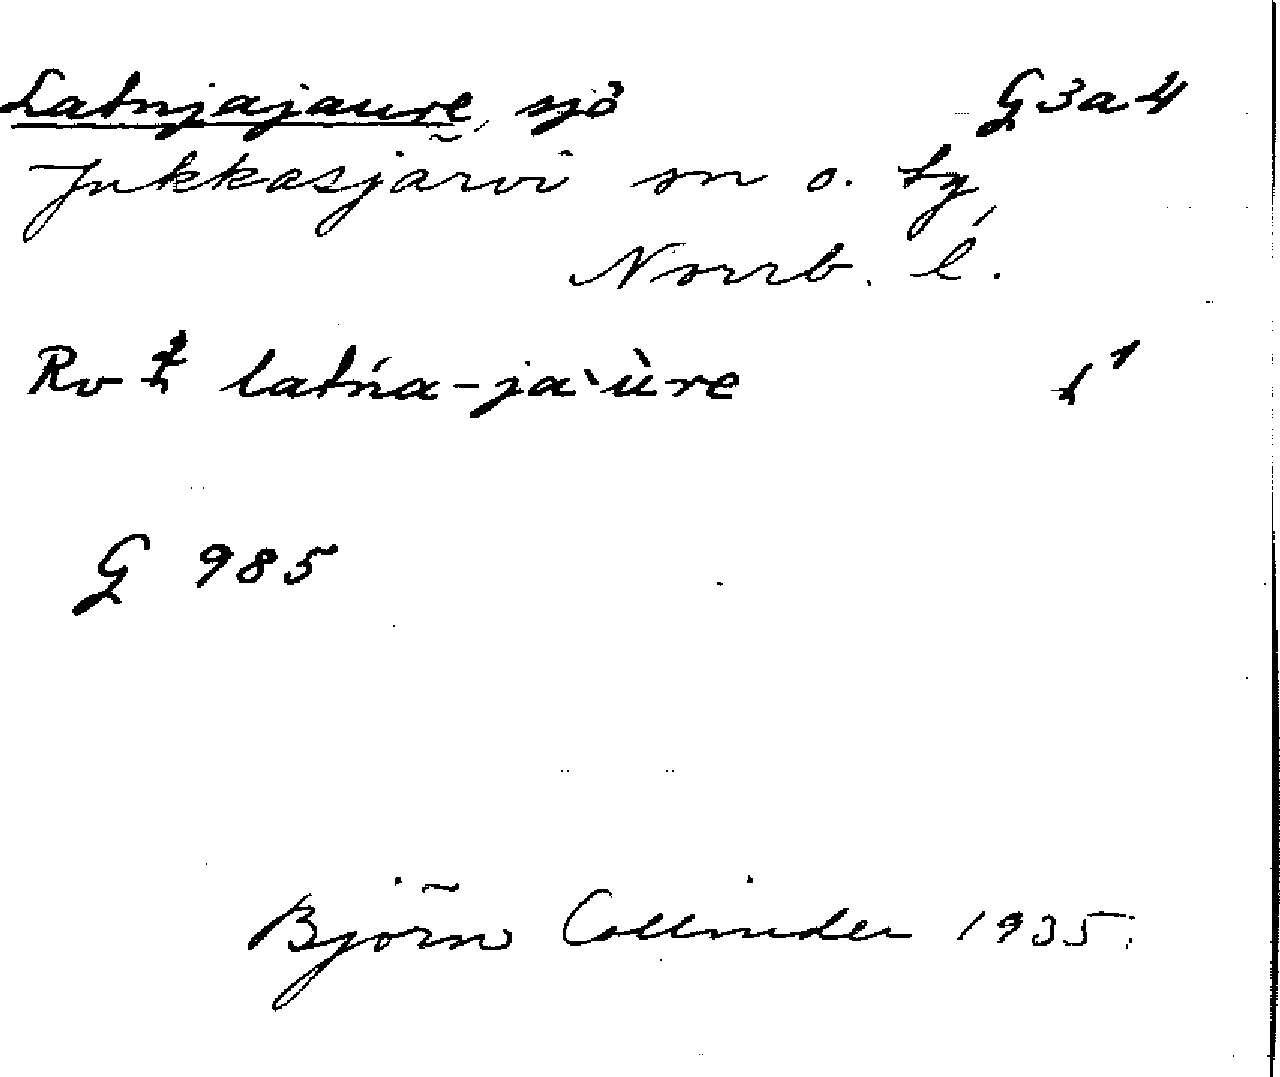 Latnjajaure, sjö G3a4
Jukkasjärvi sn o. tg
Norrb. l.
Rv latńa-ja`ùre
G 985
Björn Collinder 1935.